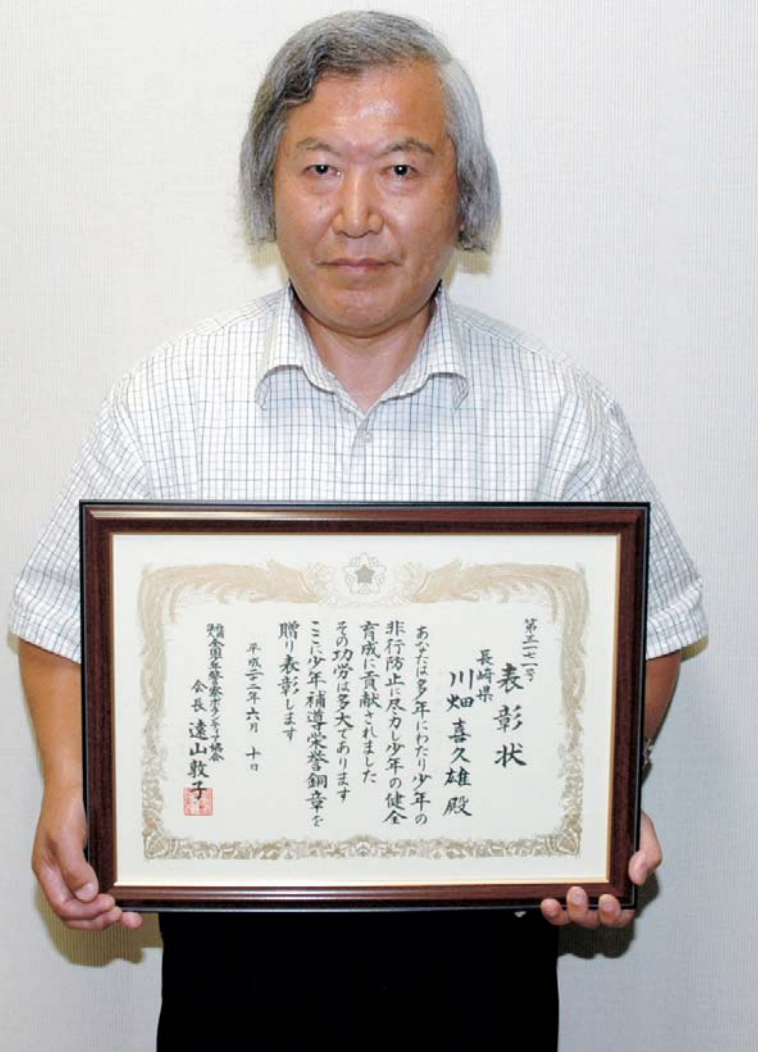 表彰状
長崎県
川畑喜久雄殿
あなたは多年にわたり少年の
非行防止に尽力し少年の健全
育成に貢献されました
その功労は多大であります
ここに少年補導栄誉銅章を
贈り表彰します
平成二十二年六月 十日
全国少年警察ボランティア協会
会長 遠山敦子